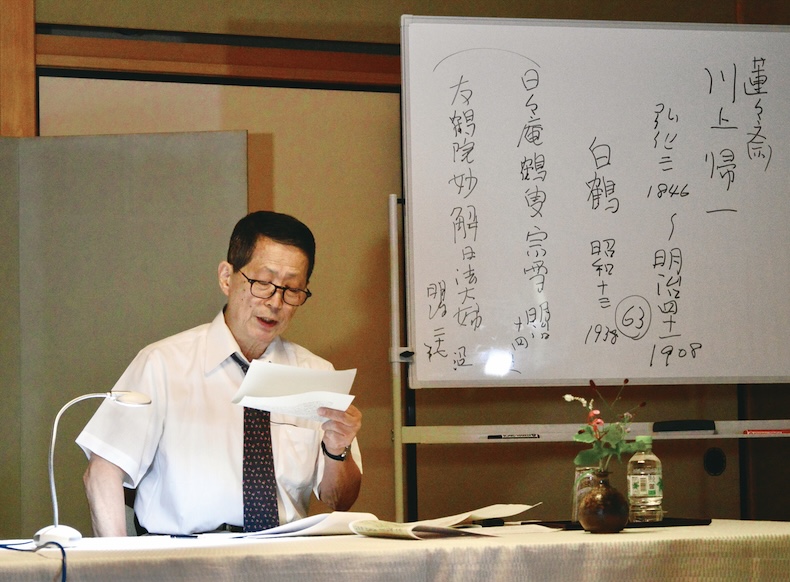 蓮々斎
川上帰一
弘化三 1846 〜 明治四十一 1908
63
白鶴 昭和十三 1938
日々庵鶴叟宗雪 明治十四
友鶴院妙解日法大姉 明治 没